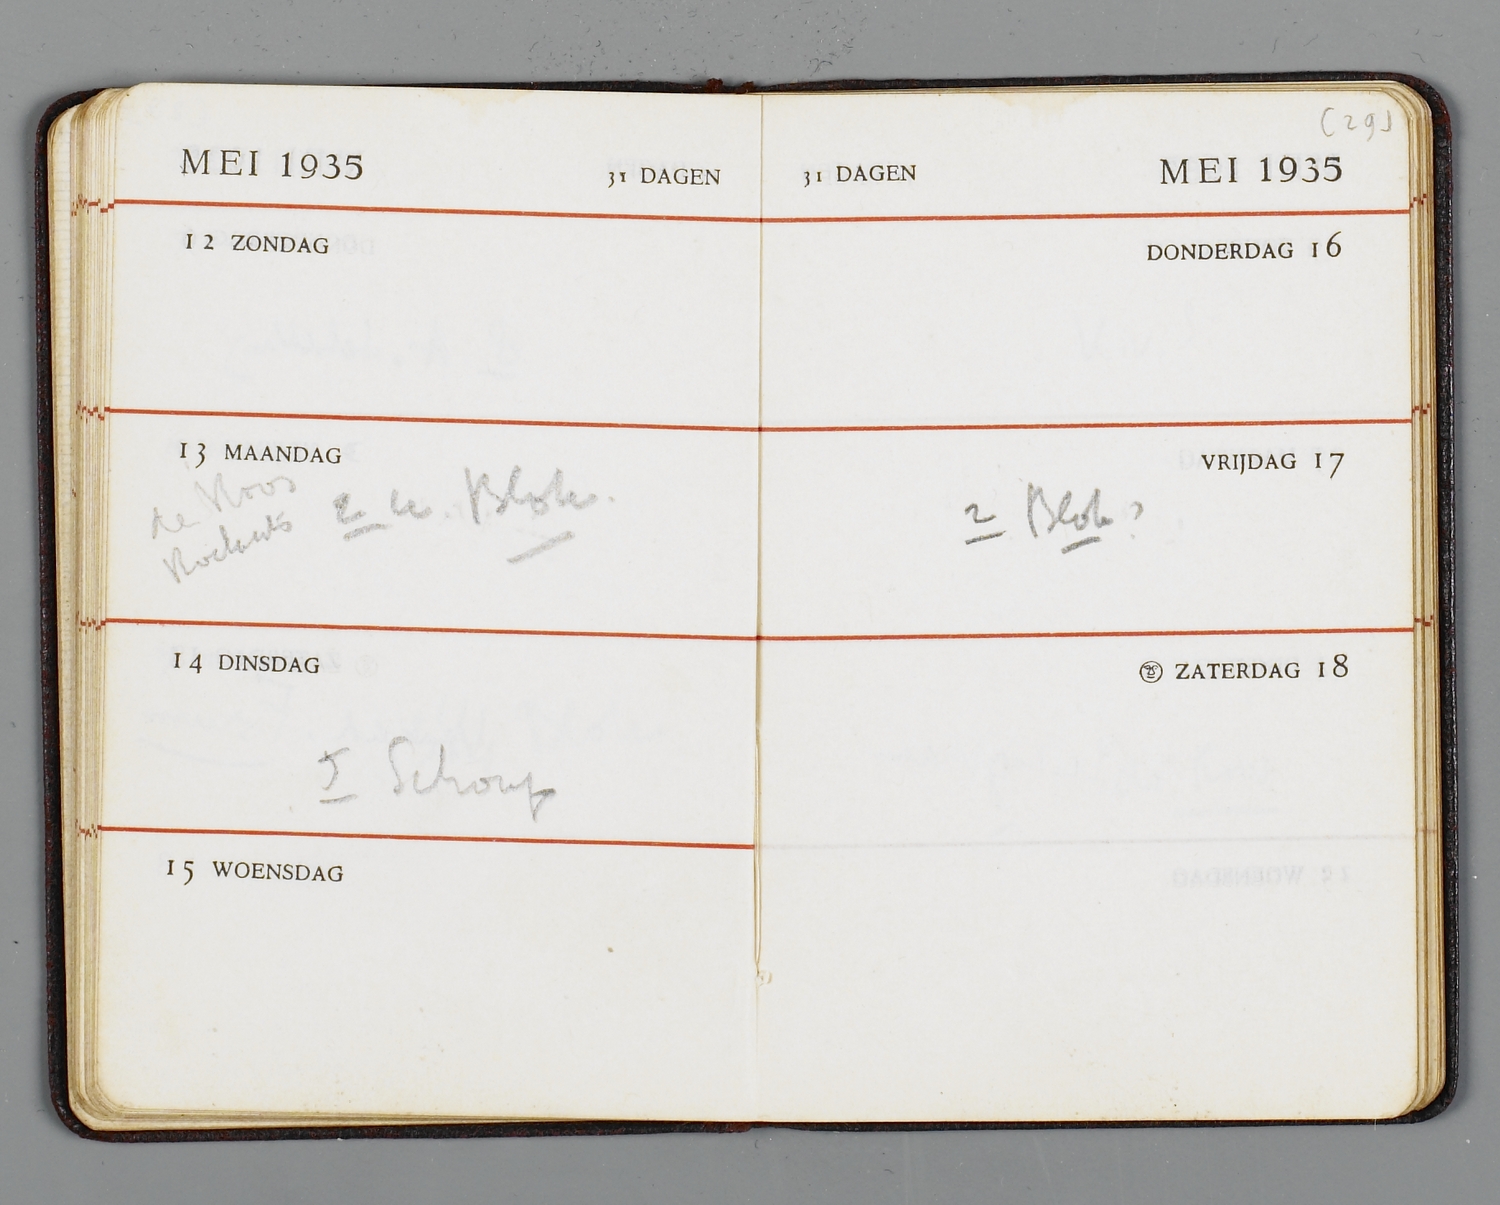 MEI 1935 31 DAGEN
12 ZONDAG
13 MAANDAG
de Roos 2 u. Blok.
14 DINSDAG
5 Schoup
15 WOENSDAG
(29)
31 DAGEN MEI 1935
DONDERDAG 16
VRIJDAG 17
2 Blok?
ZATERDAG 18